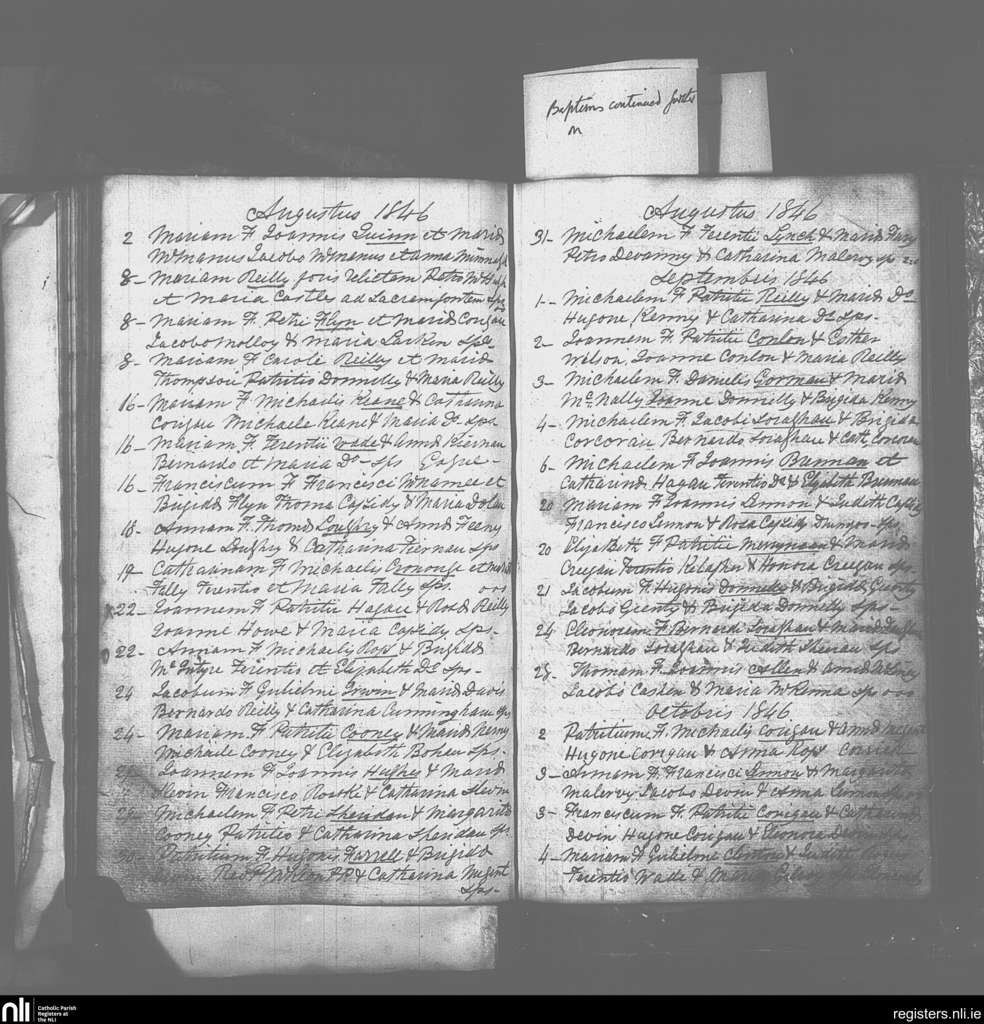 Baptisms continued
on
Augustus 1846
2 Mariam F Joannis Quinn et Maria
McManus Jacobo McManus et Anna
8- Mariam Reilly Petro
et Maria Costlo ad Sacram fontem sps
8- Mariam F. Petri Flyn et Maria Corigan
Jacobo Molloy & Maria Larkin Sps
8- Mariam F Caroli Reilly et Maria
Thompson Patritio Donnelly & Maria Reilly
16- Mariam F Michaelis Keane & Catharina
Corigan Michaele Keane & Maria Do. sps.
16- Mariam F Terentii Wade & Anna Kiernan
Bernardo et Maria Do- Sps
16- Franciscum F Francisci McNamee et
Brigida Flyn Thoma Cassidy & Maria Dolan
18- Annam F. Thoma Loughry & Anna Feeny
Hugone Loughry & Catharina Tiernan Sps
19- Catharanam F Michaelis et Maria
Fally Terentio et Maria Fally Sps.
22- Joannem F Patritii Hagan & Rosa Reilly
Joanne Howe & Maria Cassidy Sps-
22- Annam F Michaelis Ross & Brigida
McIntyre Terentio et Elizabeth Do Sps-
24 Jacobum F Gulielmi Irwin & Maria Davis
Bernardo Reilly & Catharina Cunningham sps
24- Mariam F Patritii Cooney & Maria Kerny
Michaele Cooney & Elizabeth Bohen Sps-
Joannem F Joannis Hughes & Maria
Slevin Francisco Rourke & Catharina Slevin
Michaelem F Petri Sheridan & Margarita
Cooney Patritio & Catharina Sheridan Sps
30- Patritium F Hugonis Farrell & Brigida
PP & Catharina Nugent
Sps-
Augustus 1846
31- Michaelem F Terentii Lynch & Maria
Petro Devanny & Catharina Malervy sps
Septembris 1846
1- Michaelem F Patritii Reilly & Maria Do
Hugone Kenny & Catharina Do Sps-
2- Joannem F Patritii Conlon & Esther
Wilson, Joanne Conlon & Maria Reilly
3- Michaelem F. Danielis Gorman & Maria
McNally Joanne Donnelly & Brigida Kenny
4- Michaelem F. Jacobi Loraghan & Brigida
Corcoran Bernardo Loraghan & Cath Corcoran
6- Michaelem F Joannis Brennan et
Catharina Hagan Terentio Do & Elizabeth Brennan
20 Mariam F Joannis Lennon & Judith Cassidy
Francisco Lennon & Rosa Cassidy sps-
20 Elizabeth F Patritii & Maria
Creegan Terentio & Honora Creegan sps.
21 Jacobum F Hugonis Donnelly & Brigida Geenty
Jacobo Geenty & Brigida Donnelly Sps-
24 Eleonoram F Bernardi Loraghan & Maria
Bernardo Loraghan & Judith Sps
28- Thomam F. Joannis & Anna
Jacobo & Maria McKenna sps
Octobris 1846
2 Patritium F. Michaelis Corigan & Anna
Hugone Corigan & Anna Ross
3- Annam F. Francisci Lennon & Margarita
Malervy Jacobo Devin & Anna Lennon
3- Franciscum F. Patritii Corigan & Catharina
Devin Hugone Corigan & Eleonora
4- Mariam F Gulielmi Clinton & Judith
Terentio Wade & Maria
nli Catholic Parish
Registers at
the NLI
registers.nli.ie